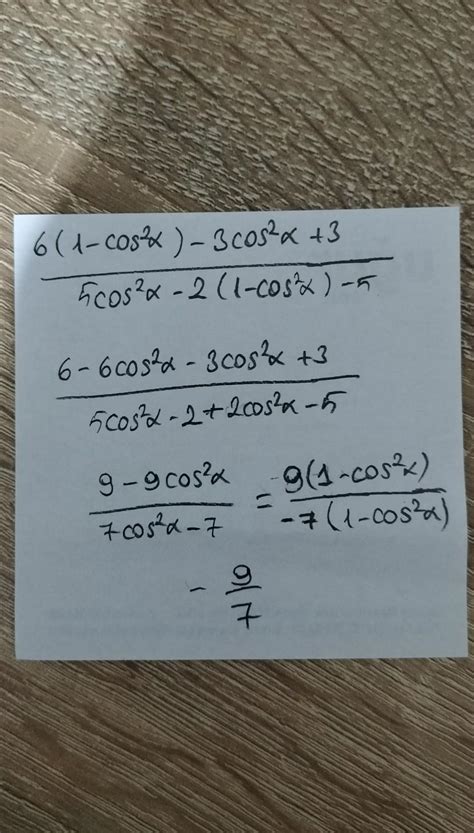 6(1-cos²α)-3cos²α+3
5cos²α-2(1-cos²α)-5
6-6cos²α-3cos²α+3
5cos²α-2+2cos²α-5
9-9cos²α = 9(1-cos²α)
7cos²α-7 -7(1-cos²α)
- 9
7